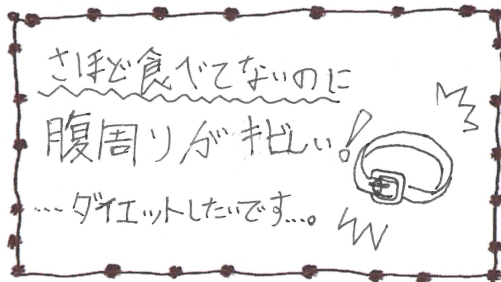 さほど食べてないのに
腹周りがキビしい!
…ダイエットしたいです…。